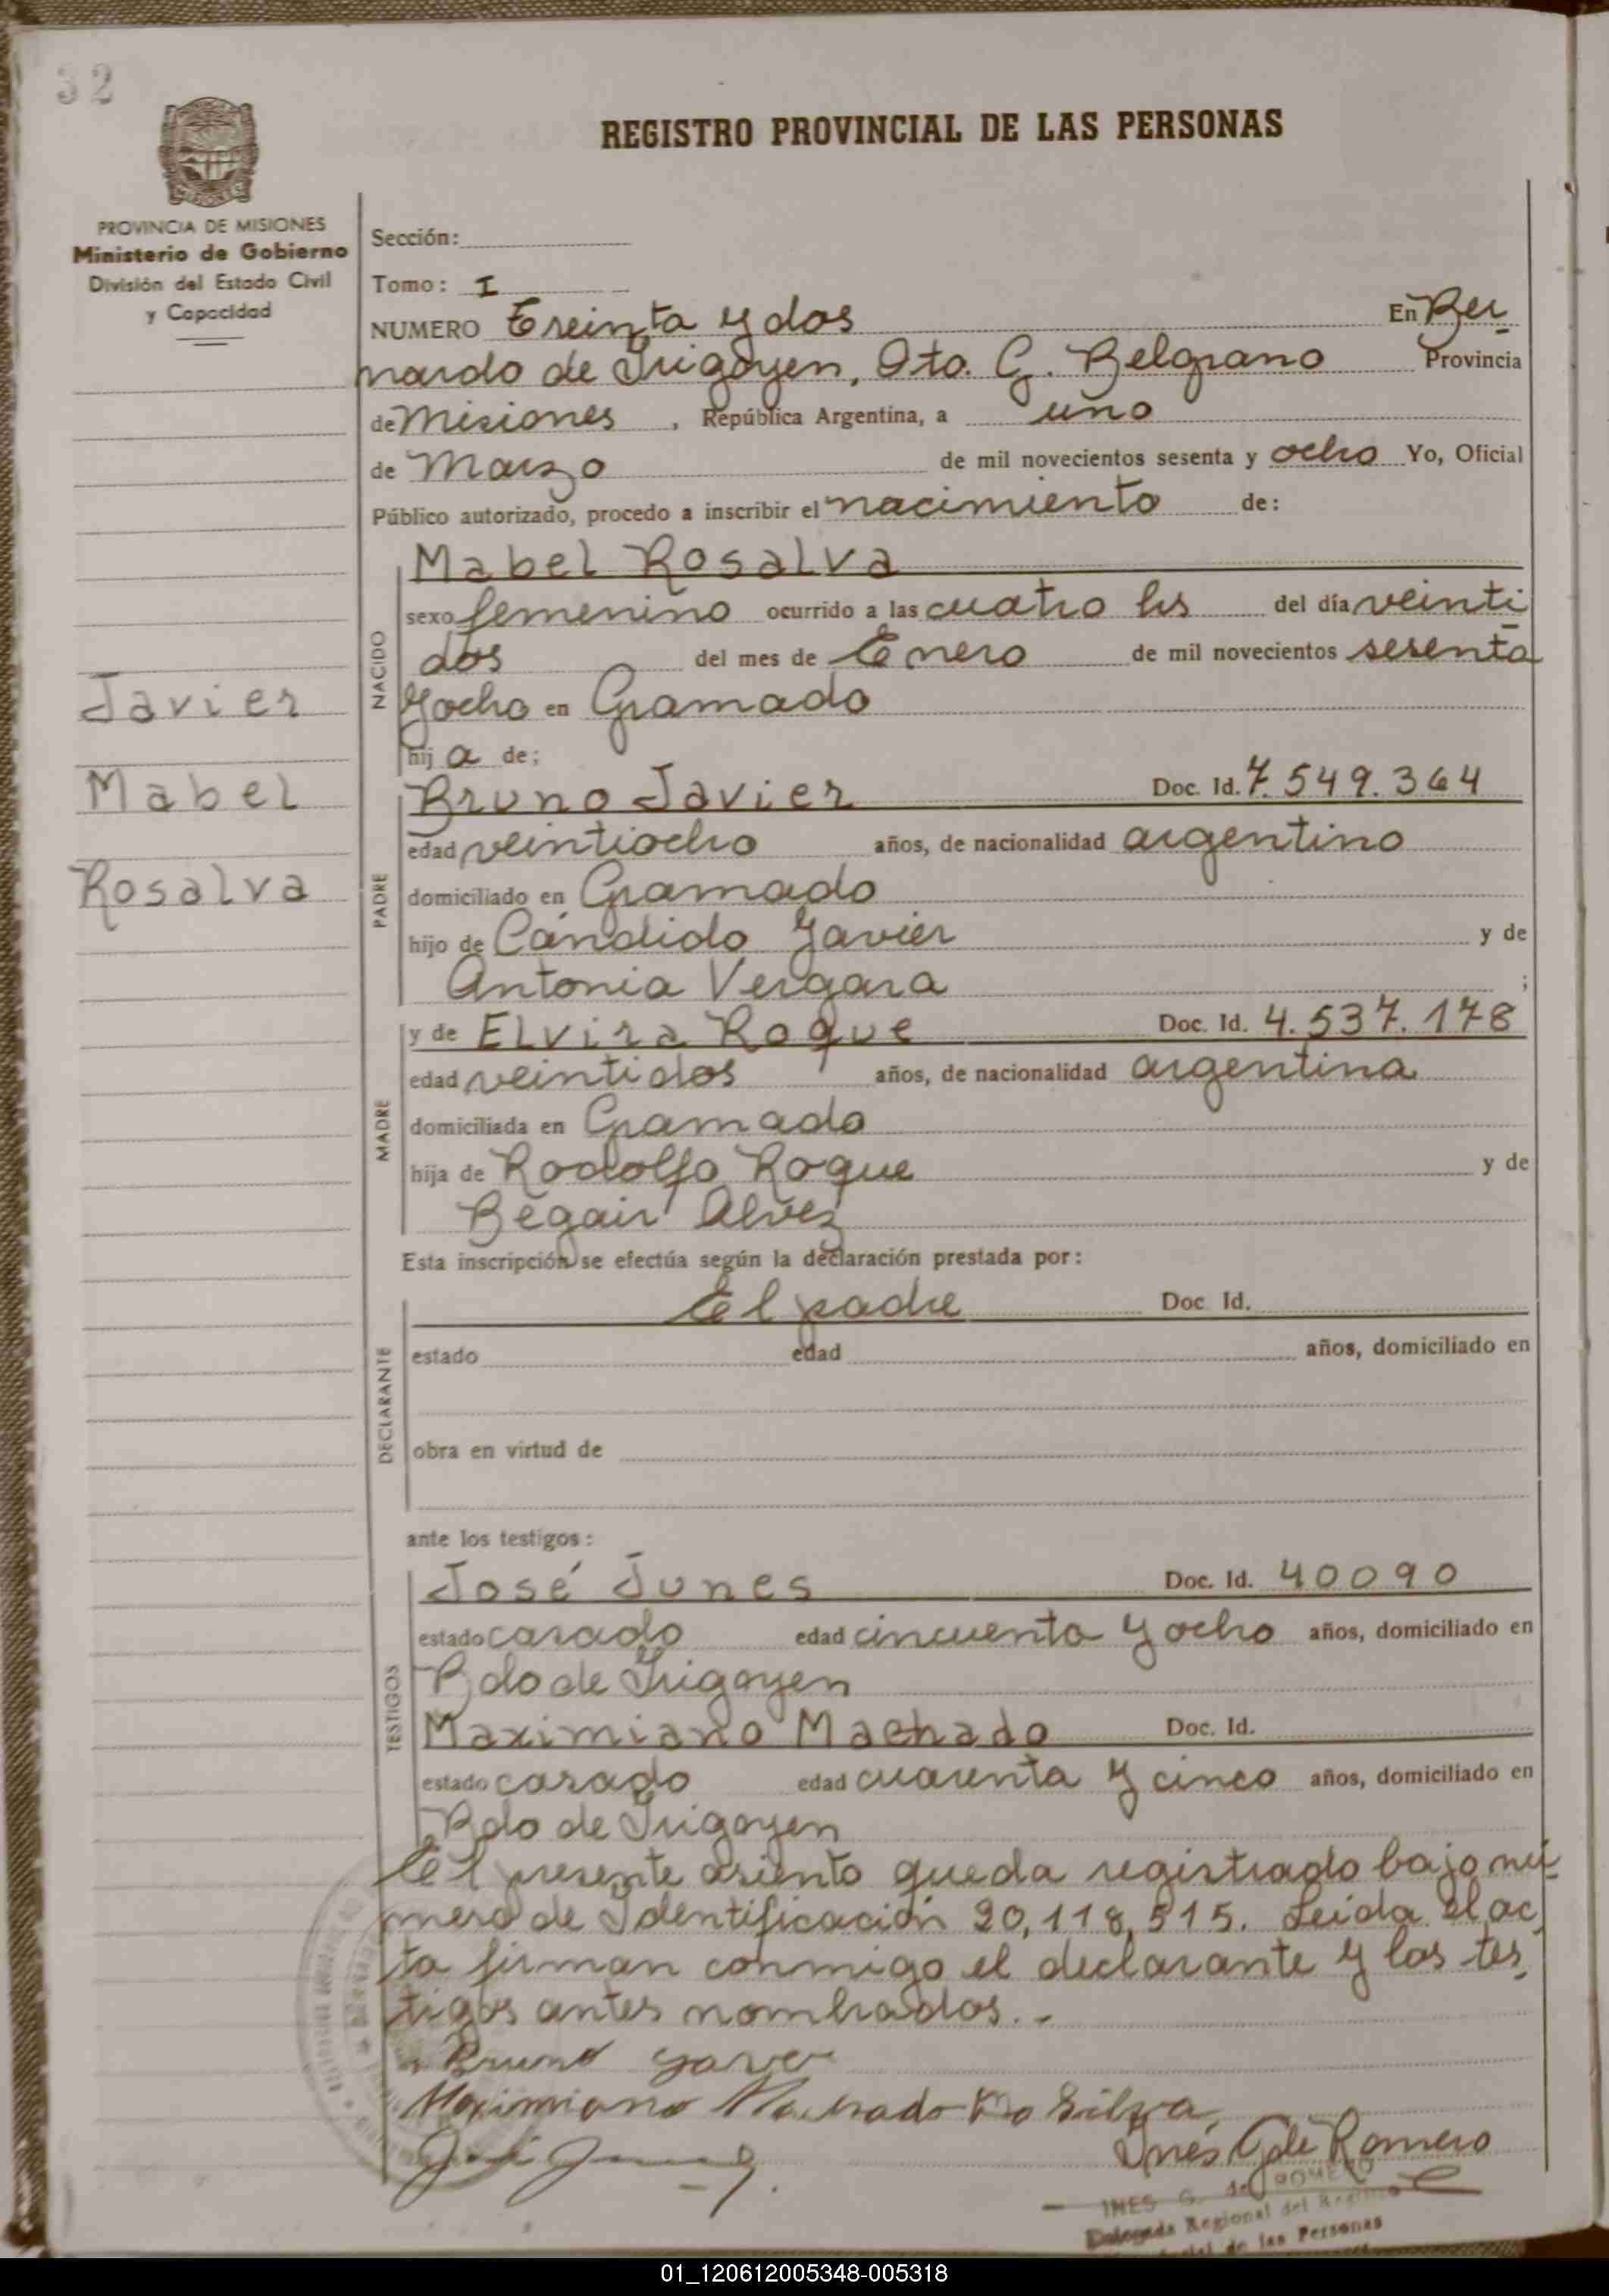 32
REGISTRO PROVINCIAL DE LAS PERSONAS
PROVINCIA DE MISIONES
Ministerio de Gobierno
División del Estado Civil
y Capacidad
Sección:
Tomo: I
NUMERO Treinta y dos En Ber
nardo de Irigoyen, Dto. G. Belgrano Provincia
de Misiones, República Argentina, a uno
de Marzo de mil novecientos sesenta y ocho Yo, Oficial
Público autorizado, procedo a inscribir el nacimiento de:
NACIDO
Mabel Rosalva
sexo femenino ocurrido a las cuatro hs del día veinti
dos del mes de Enero de mil novecientos sesenta
y ocho en Gramado
hija de;
Javier
Mabel
Rosalva
PADRE
Bruno Javier Doc. Id. 7.549.364
edad veintiocho años, de nacionalidad argentino
domiciliado en Gramado
hijo de Cándido Javier y de
Antonia Vergara ;
MADRE
y de Elvira Roque Doc. Id. 4.537.178
edad veintidos años, de nacionalidad argentina
domiciliada en Gramado
hija de Rodolfo Roque y de
Begair Alvez
Esta inscripción se efectúa según la declaración prestada por:
DECLARANTE
El padre Doc. Id.
estado edad años, domiciliado en
obra en virtud de
ante los testigos:
TESTIGOS
José Junes Doc. Id. 40090
estado casado edad cincuenta y ocho años, domiciliado en
Bdo de Irigoyen
Maximiano Machado Doc. Id.
estado casado edad cuarenta y cinco años, domiciliado en
Bdo de Irigoyen
El presente asiento queda registrado bajo nú-
mero de Identificación 20,118,515. Leida el ac
ta firman conmigo el declarante y los tes
tigos antes nombrados.-
Bruno
Maximiano Machado Da Silva
José
Inés G de Romero
INES G. de ROMERO
Delegada Regional del Registro
de las Personas
01_120612005348-005318